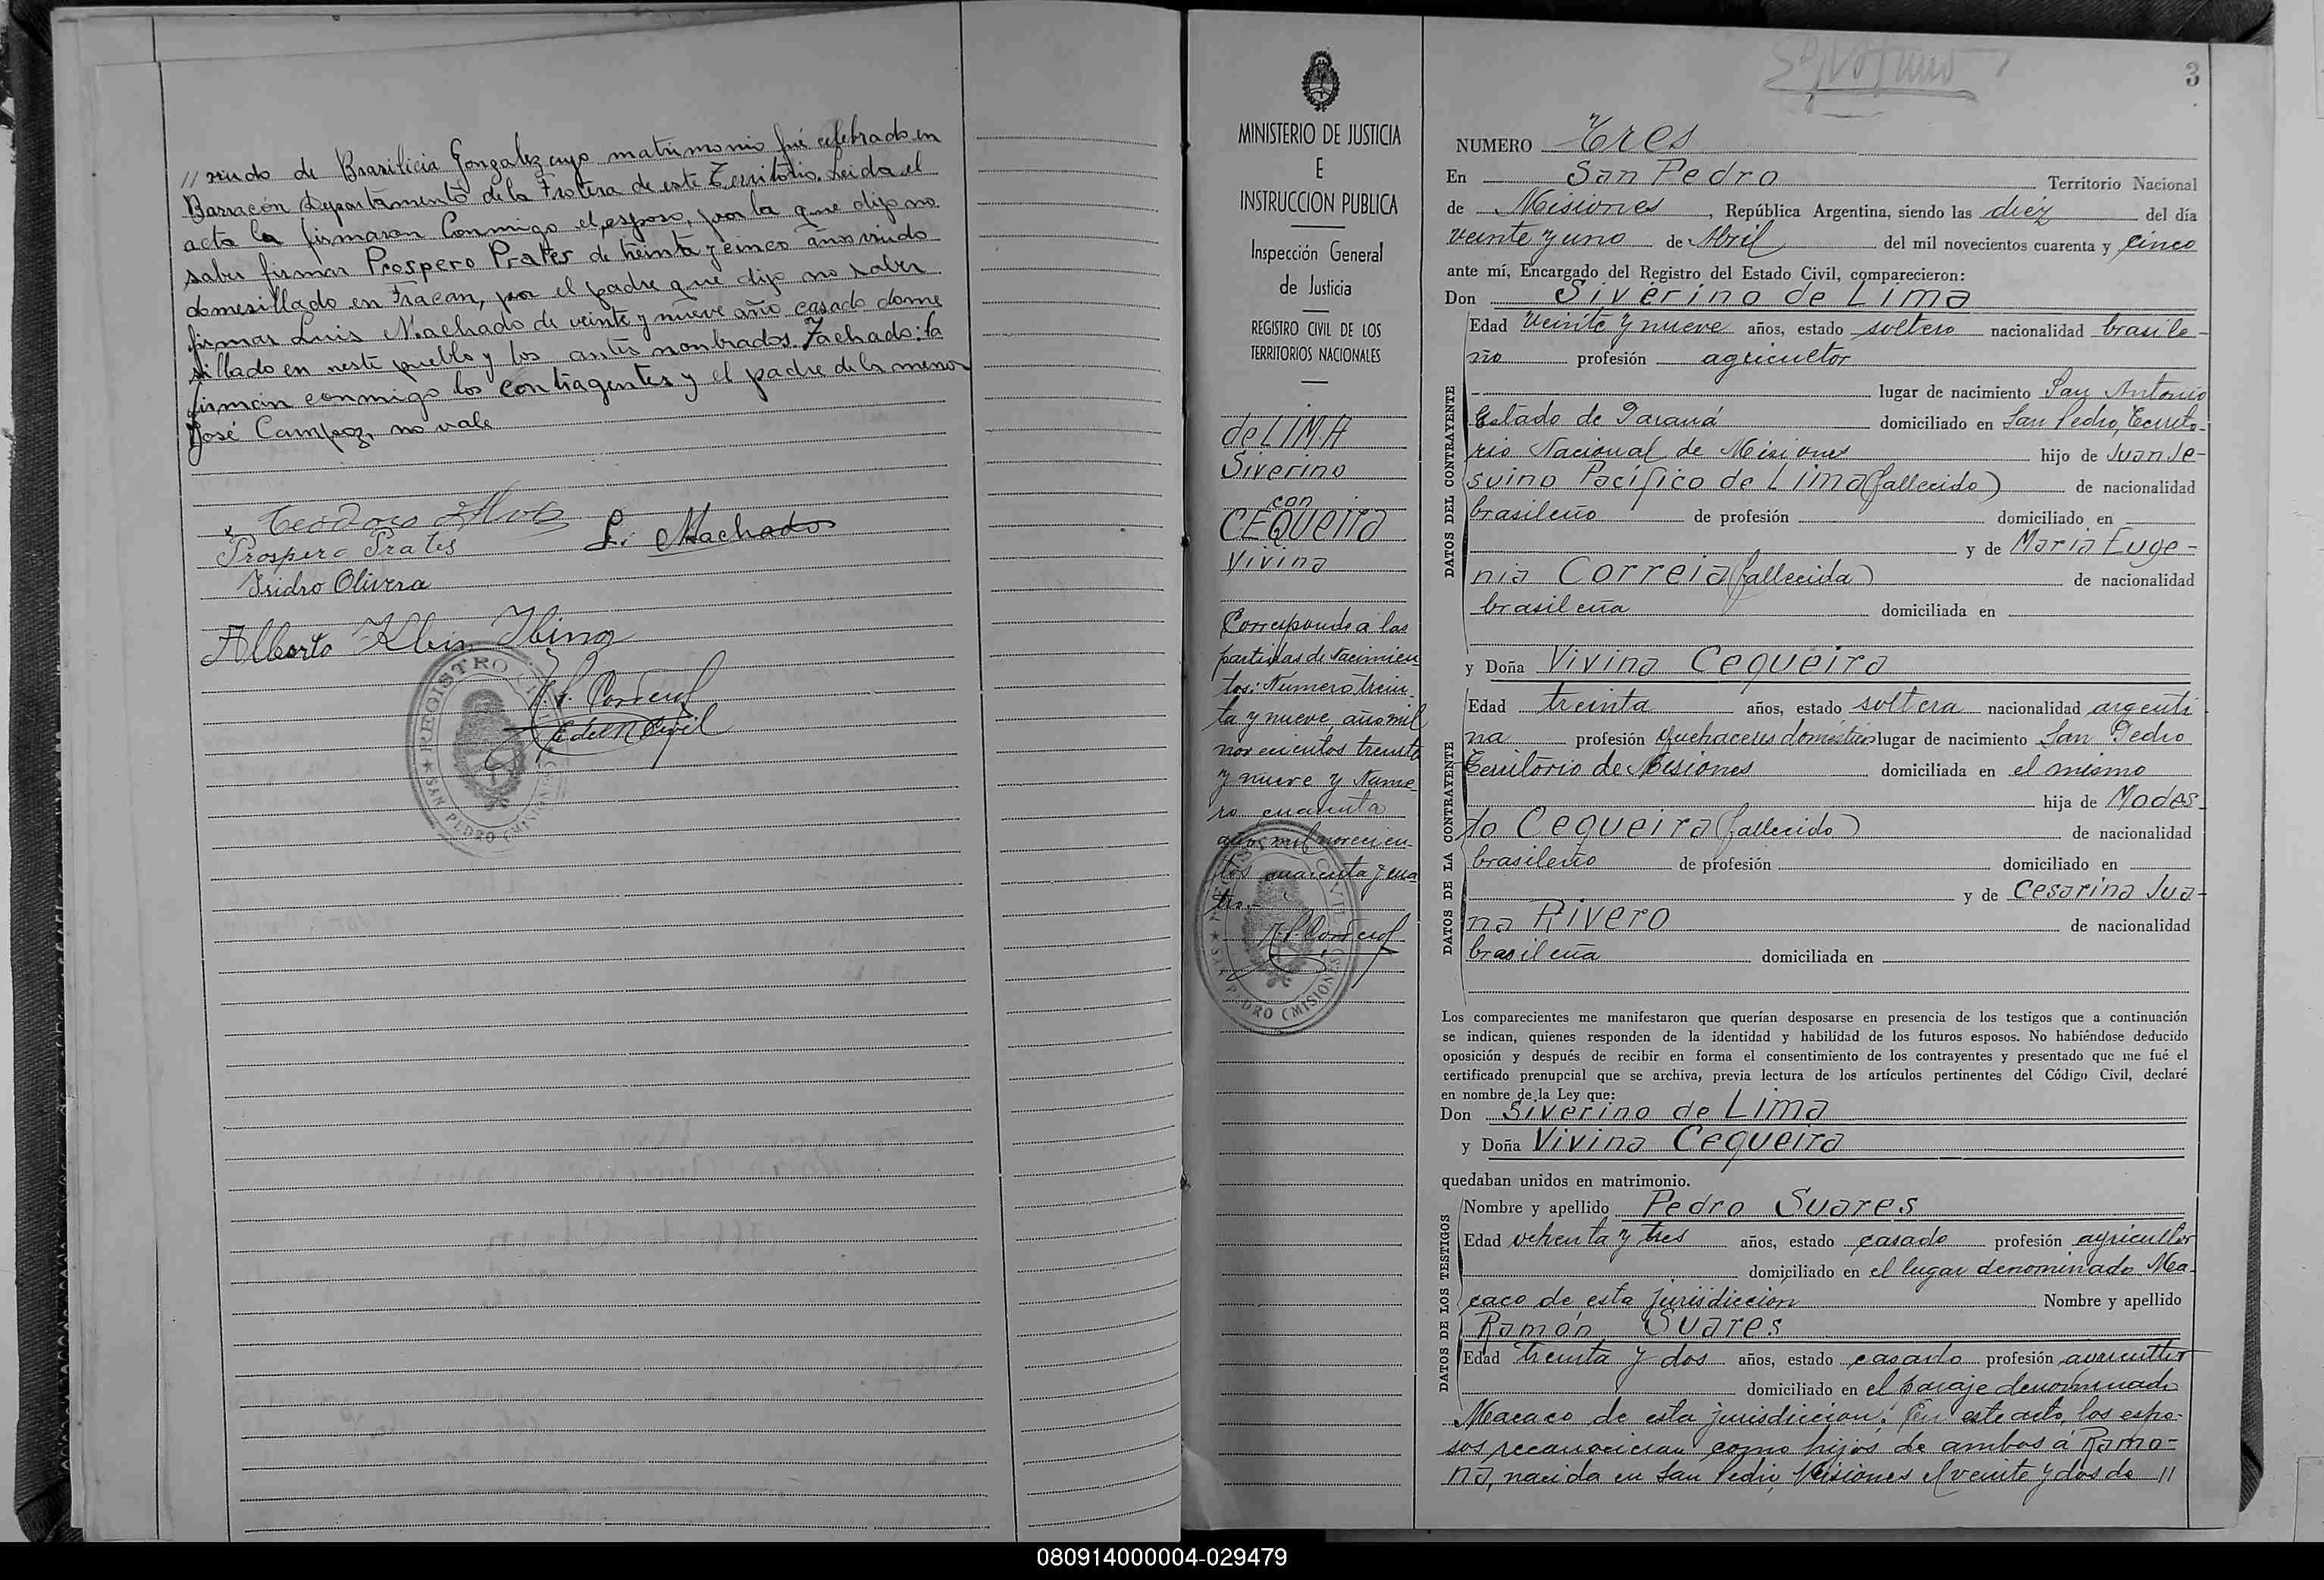 // viudo de Brasilicia Gonzalez cuyo matrimonio fué celebrado en
Barracón Departamento de la Frotera de este Territorio. Leida el
acta la firmaron Conmigo el esposo, por la que dijo no
saber firmar Prospero Prates de treinta y cinco años viudo
domesillado en Fracan, por el padre que dijo no saber
firmar Luis Machado de veinte y nueve año casado dome
sillado en neste pueblo y los antes nombrados. Tachado: la
firman conmigo los contragentes y el padre de la menor
José Campoz, no vale
Prospero Prates
L. Machado
Isidro Olivera
Alberto Klein
REGISTRO CIVIL
SAN PEDRO (MISIONES)
E del R Civil
MINISTERIO DE JUSTICIA
E
INSTRUCCION PUBLICA
Inspección General
de Justicia
REGISTRO CIVIL DE LOS
TERRITORIOS NACIONALES
de LIMA
Siverino
con
CEQUEIRA
Vivina
Corresponde a las
partidas de nacimien
tos: Numero trein
ta y nueve año mil
novecientos treinta
y nueve y Nume
ro cuarenta
año mil novecien-
tos cuarenta y cua
tro.-
REGISTRO CIVIL
SAN PEDRO (MISIONES)
3
NUMERO Tres
En San Pedro Territorio Nacional
de Misiones, República Argentina, siendo las diez del día
veinte y uno de Abril del mil novecientos cuarenta y cinco
ante mí, Encargado del Registro del Estado Civil, comparecieron:
Don Siverino de Lima
DATOS DEL CONTRAYENTE
Edad veinte y nueve años, estado soltero nacionalidad brasile-
ño profesión agricultor
lugar de nacimiento San Antonio
Estado de Paraná domiciliado en San Pedro, Territo-
rio Nacional de Misiones hijo de Juan Je-
suino Pacífico de Lima (fallecido) de nacionalidad
brasileño de profesión domiciliado en
y de Maria Euge-
nia Correia (fallecida) de nacionalidad
brasileña domiciliada en
y Doña Vivina Cequeira
DATOS DE LA CONTRAYENTE
Edad treinta años, estado soltera nacionalidad argenti
na profesión quehaceres domésticos lugar de nacimiento San Pedro
Territorio de Misiones domiciliada en el mismo
hija de Modes-
to Cequeira (fallecido) de nacionalidad
brasileño de profesión domiciliado en
y de Cesarina Jua-
na Rivero de nacionalidad
brasileña domiciliada en
Los comparecientes me manifestaron que querían desposarse en presencia de los testigos que a continuación
se indican, quienes responden de la identidad y habilidad de los futuros esposos. No habiéndose deducido
oposición y después de recibir en forma el consentimiento de los contrayentes y presentado que me fué el
certificado prenupcial que se archiva, previa lectura de los artículos pertinentes del Código Civil, declaré
en nombre de la Ley que:
Don Siverino de Lima
y Doña Vivina Cequeira
quedaban unidos en matrimonio.
DATOS DE LOS TESTIGOS
Nombre y apellido Pedro Suares
Edad y tres años, estado casado profesión agricultor
domiciliado en el lugar denominado Ma-
caco de esta jurisdiccion Nombre y apellido
Ramón Suares
Edad treinta y dos años, estado casado profesión agricultor
domiciliado en el paraje denominado
Macaco de esta jurisdiccion. En este acto, los espo-
sos reconocieron como hijos de ambos á Ramo-
na, nacida en San Pedro, Misiones el veinte y dos de //
080914000004-029479